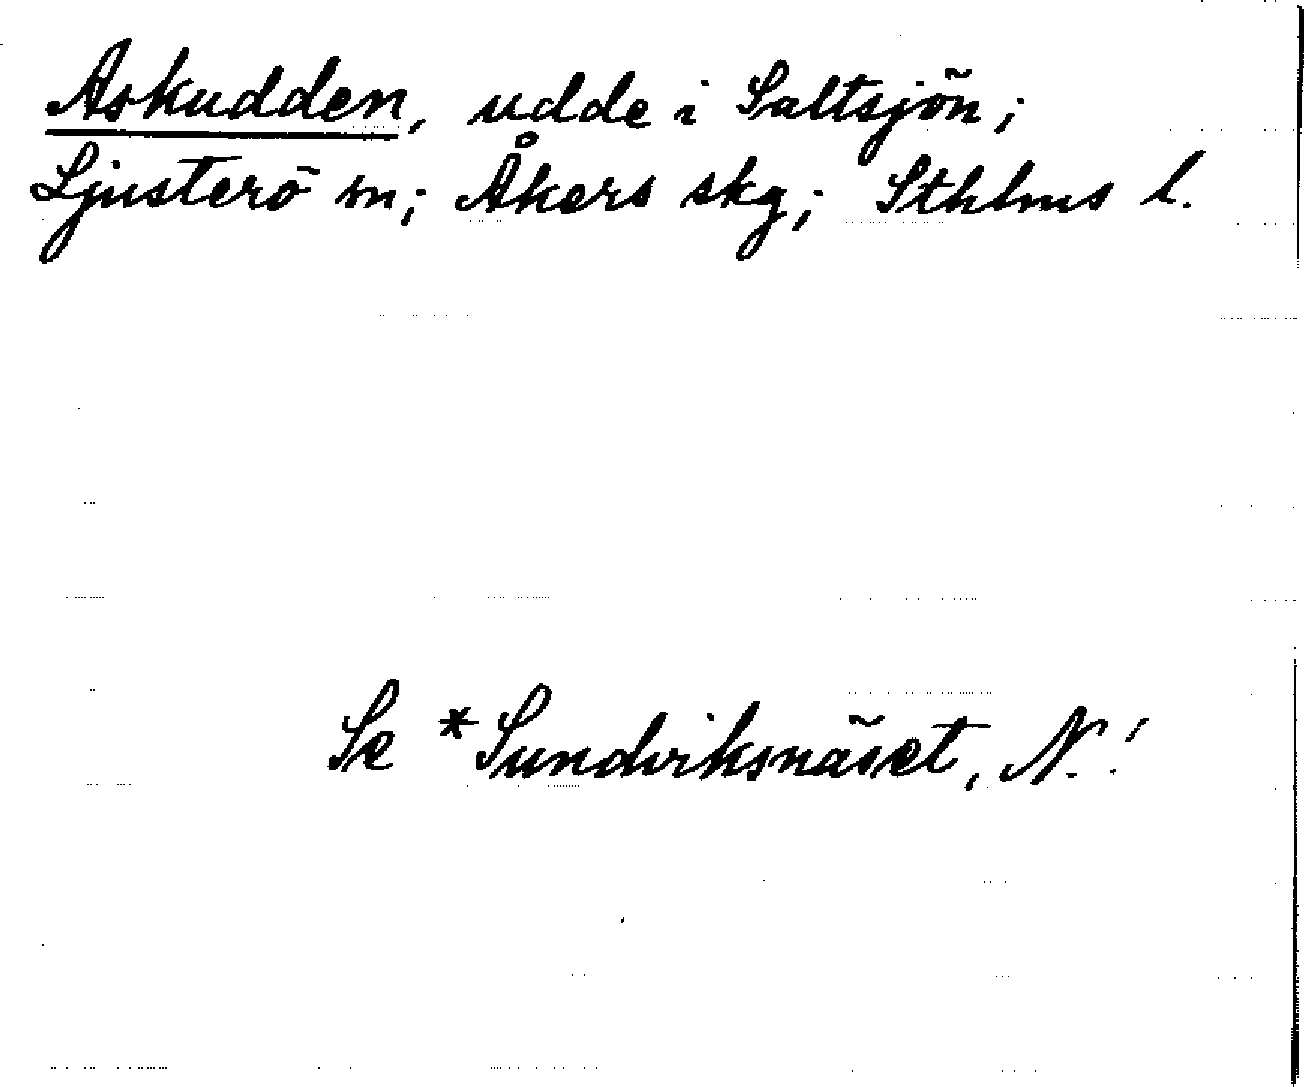 Askudden, udde i Saltsjön;
Ljusterö sn; Åkers skg; Sthlms l.
Se *Sundviksnäset, N.!